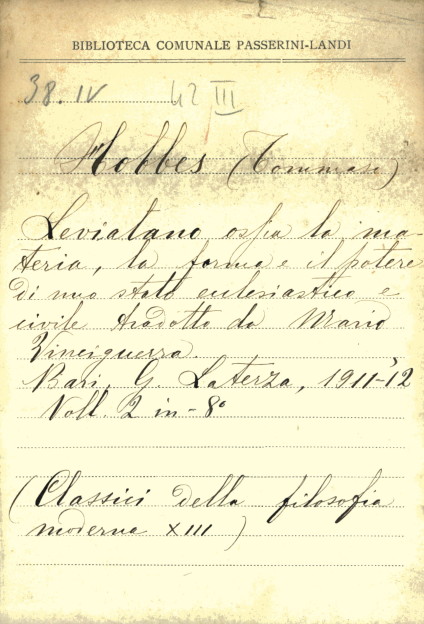 BIBLIOTECA COMUNALE PASSERINI-LANDI
38. IV 42 III
Hobbes (Tommaso)
Leviatano ossia la ma-
teria, la forma e il potere
di uno stato eclesiastico e
civile tradotto da Mario
Vinciguerra.
Bari, G. Laterza, 1911-12
Voll. 2 in-8°
(Classici della filosofia
moderna XIII)